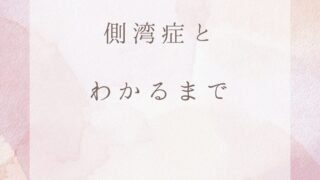 側湾症と
わかるまで